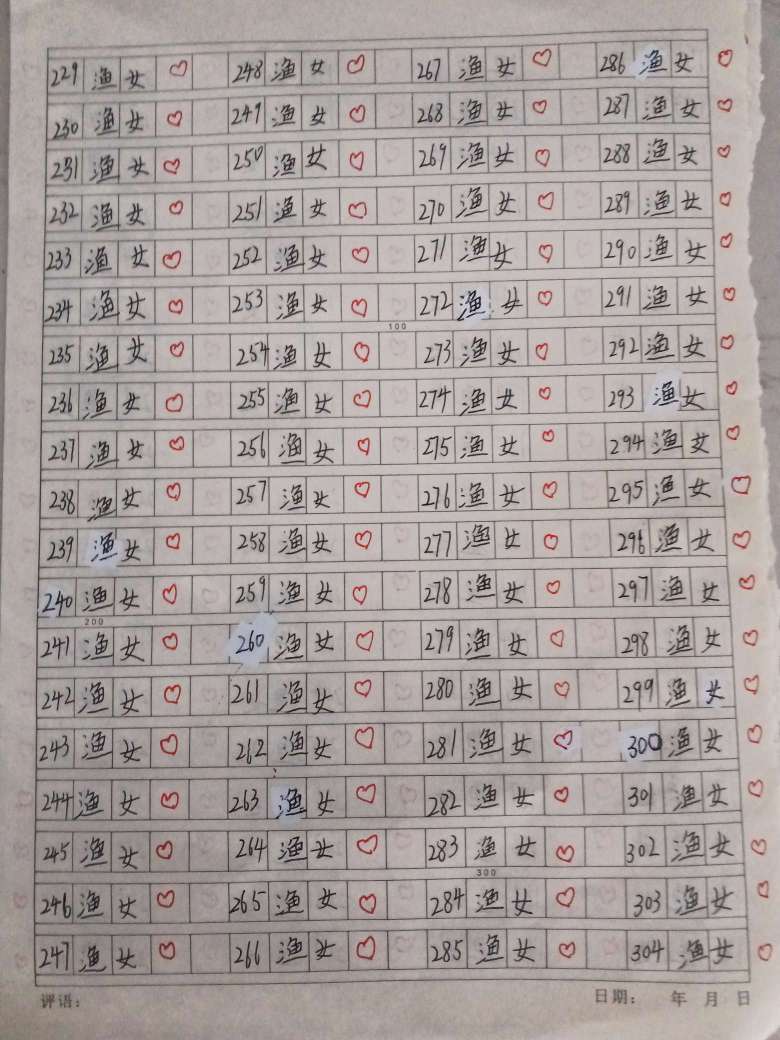 229 渔女 248 渔女 267 渔女 286 渔女
230 渔女 249 渔女 268 渔女 287 渔女
231 渔女 250 渔女 269 渔女 288 渔女
232 渔女 251 渔女 270 渔女 289 渔女
233 渔女 252 渔女 271 渔女 290 渔女
234 渔女 253 渔女 272 渔女 291 渔女
100
235 渔女 254 渔女 273 渔女 292 渔女
236 渔女 255 渔女 274 渔女 293 渔女
237 渔女 256 渔女 275 渔女 294 渔女
238 渔女 257 渔女 276 渔女 295 渔女
239 渔女 258 渔女 277 渔女 296 渔女
240 渔女 259 渔女 278 渔女 297 渔女
200
241 渔女 260 渔女 279 渔女 298 渔女
242 渔女 261 渔女 280 渔女 299 渔女
243 渔女 262 渔女 281 渔女 300 渔女
244 渔女 263 渔女 282 渔女 301 渔女
245 渔女 264 渔女 283 渔女 302 渔女
300
246 渔女 265 渔女 284 渔女 303 渔女
247 渔女 266 渔女 285 渔女 304 渔女
评语: 日期: 年 月 日